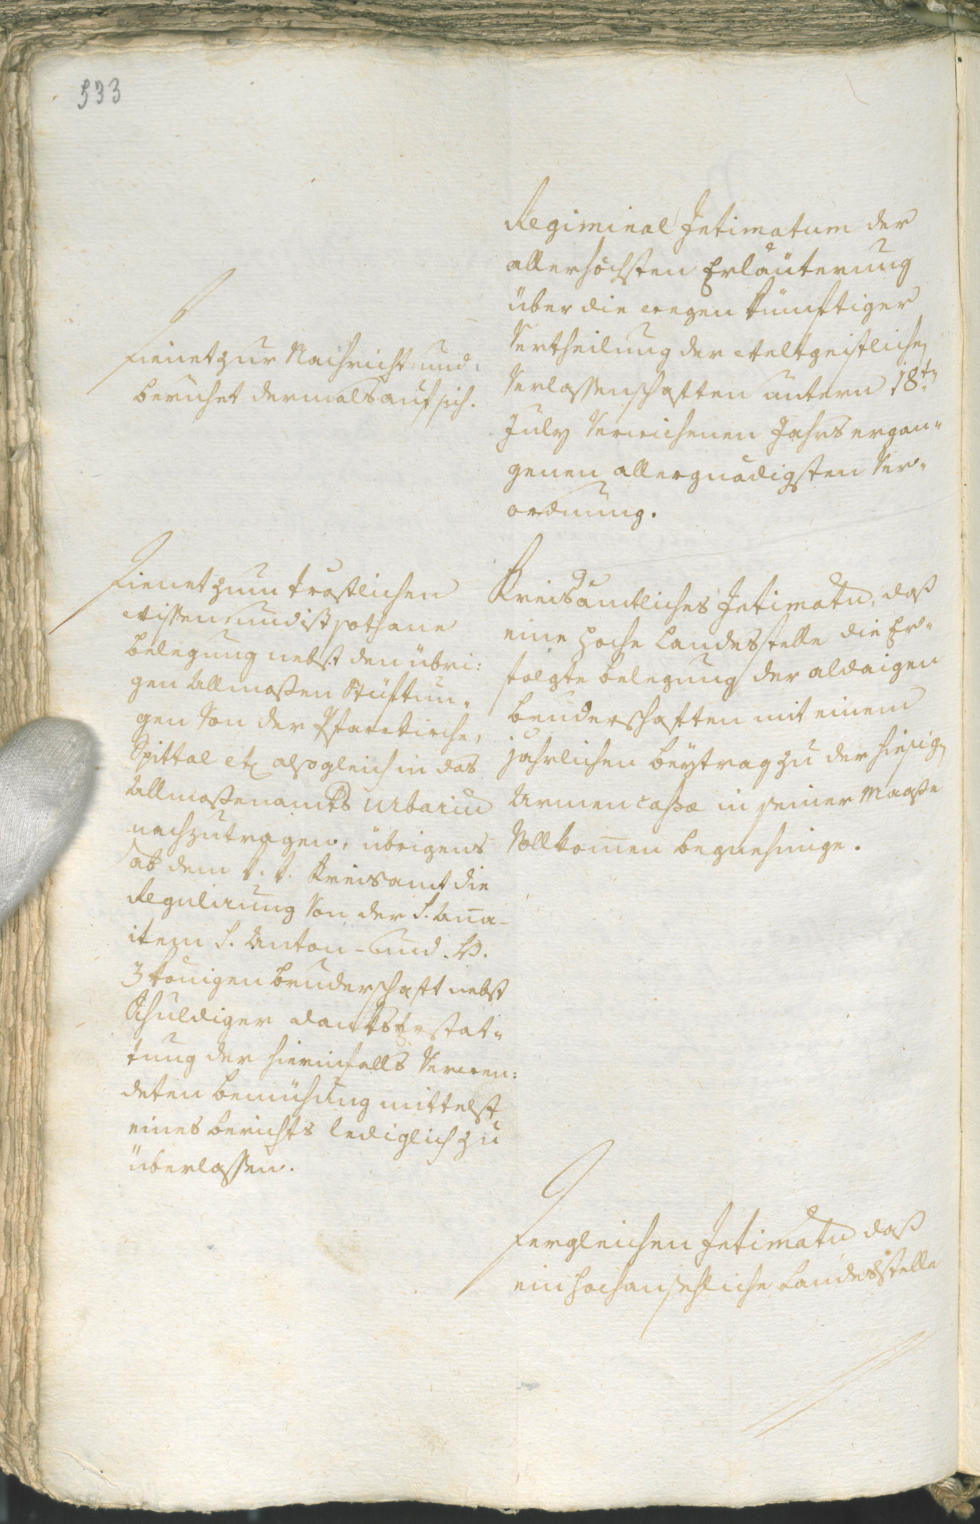 533
Regiminal Intimatum der
allerhöchsten Erläuterung
über die wegen künftiger
Vertheilung der Weltgeistlichen
Verlassenschaften untern 18t
July verwichenen Jahrs ergan-
genen allergnädigsten Ver-
ordnung.
Dienet zur Nachricht und
beruhet dermals auf sich.
Kreisämtliches Intimatum, daß
eine hoche Landesstelle die Er-
folgte belegung der aldaigen
bruderschaften mit einem
jährlichen beytrag zu der hiesigen
Armen cassa in seiner Maaße
Vollkom̅en begnehmige.
Dienet zum tröstlichen
wissen und ist sothane
belegung nebst den übri:
gen Allmoßen Stüftun-
gen Von der Pfarrkirche,
Spittal etc. alsogleich in das
Allmoßenamts Urbarium
nachzutragen, übrigens
ab dem k. k. Kreisamt die
Regulirung Von der S. An̅a-
item S. Anton- und H.
3 königen bruderschaft nebst
Schuldiger danks Erstat-
tung der hierinfalls Verwen:
deten bemühung mittelst
eines berichts lediglich zu
überlassen.
Dergleichen Intimatum daß
ein hochansehliche Landesstelle